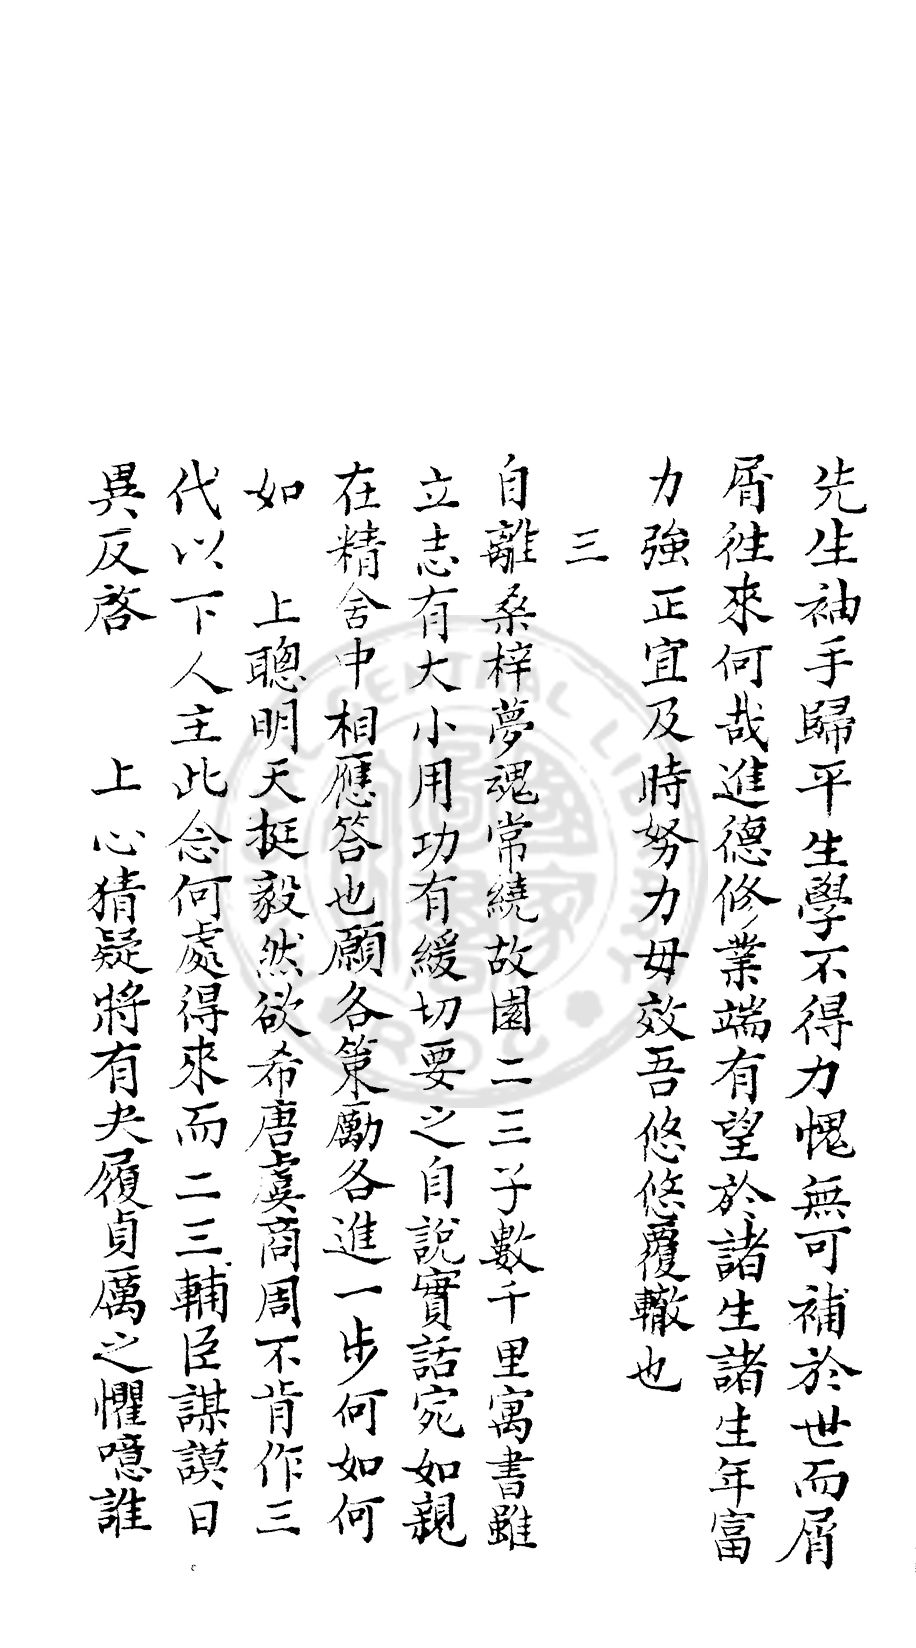 先生袖手歸平生學不得力愧無可補於世而屑
屑徃來何哉進德修業端有望於諸生諸生年富
力強正宜及時努力毋效吾悠悠覆轍也
三
自離桑梓夢魂常繞故園二三子數千里寓書雖
立志有大小用功有緩切要之自說實話宛如親
在精舍中相應答也願各策勵各進一步何如何
如 上聰明天挺毅然欲希唐虞商周不肯作三
代以下人主此念何處得來而二三輔臣謀謨日
異反啓 上心猜疑將有夬履貞厲之懼噫誰